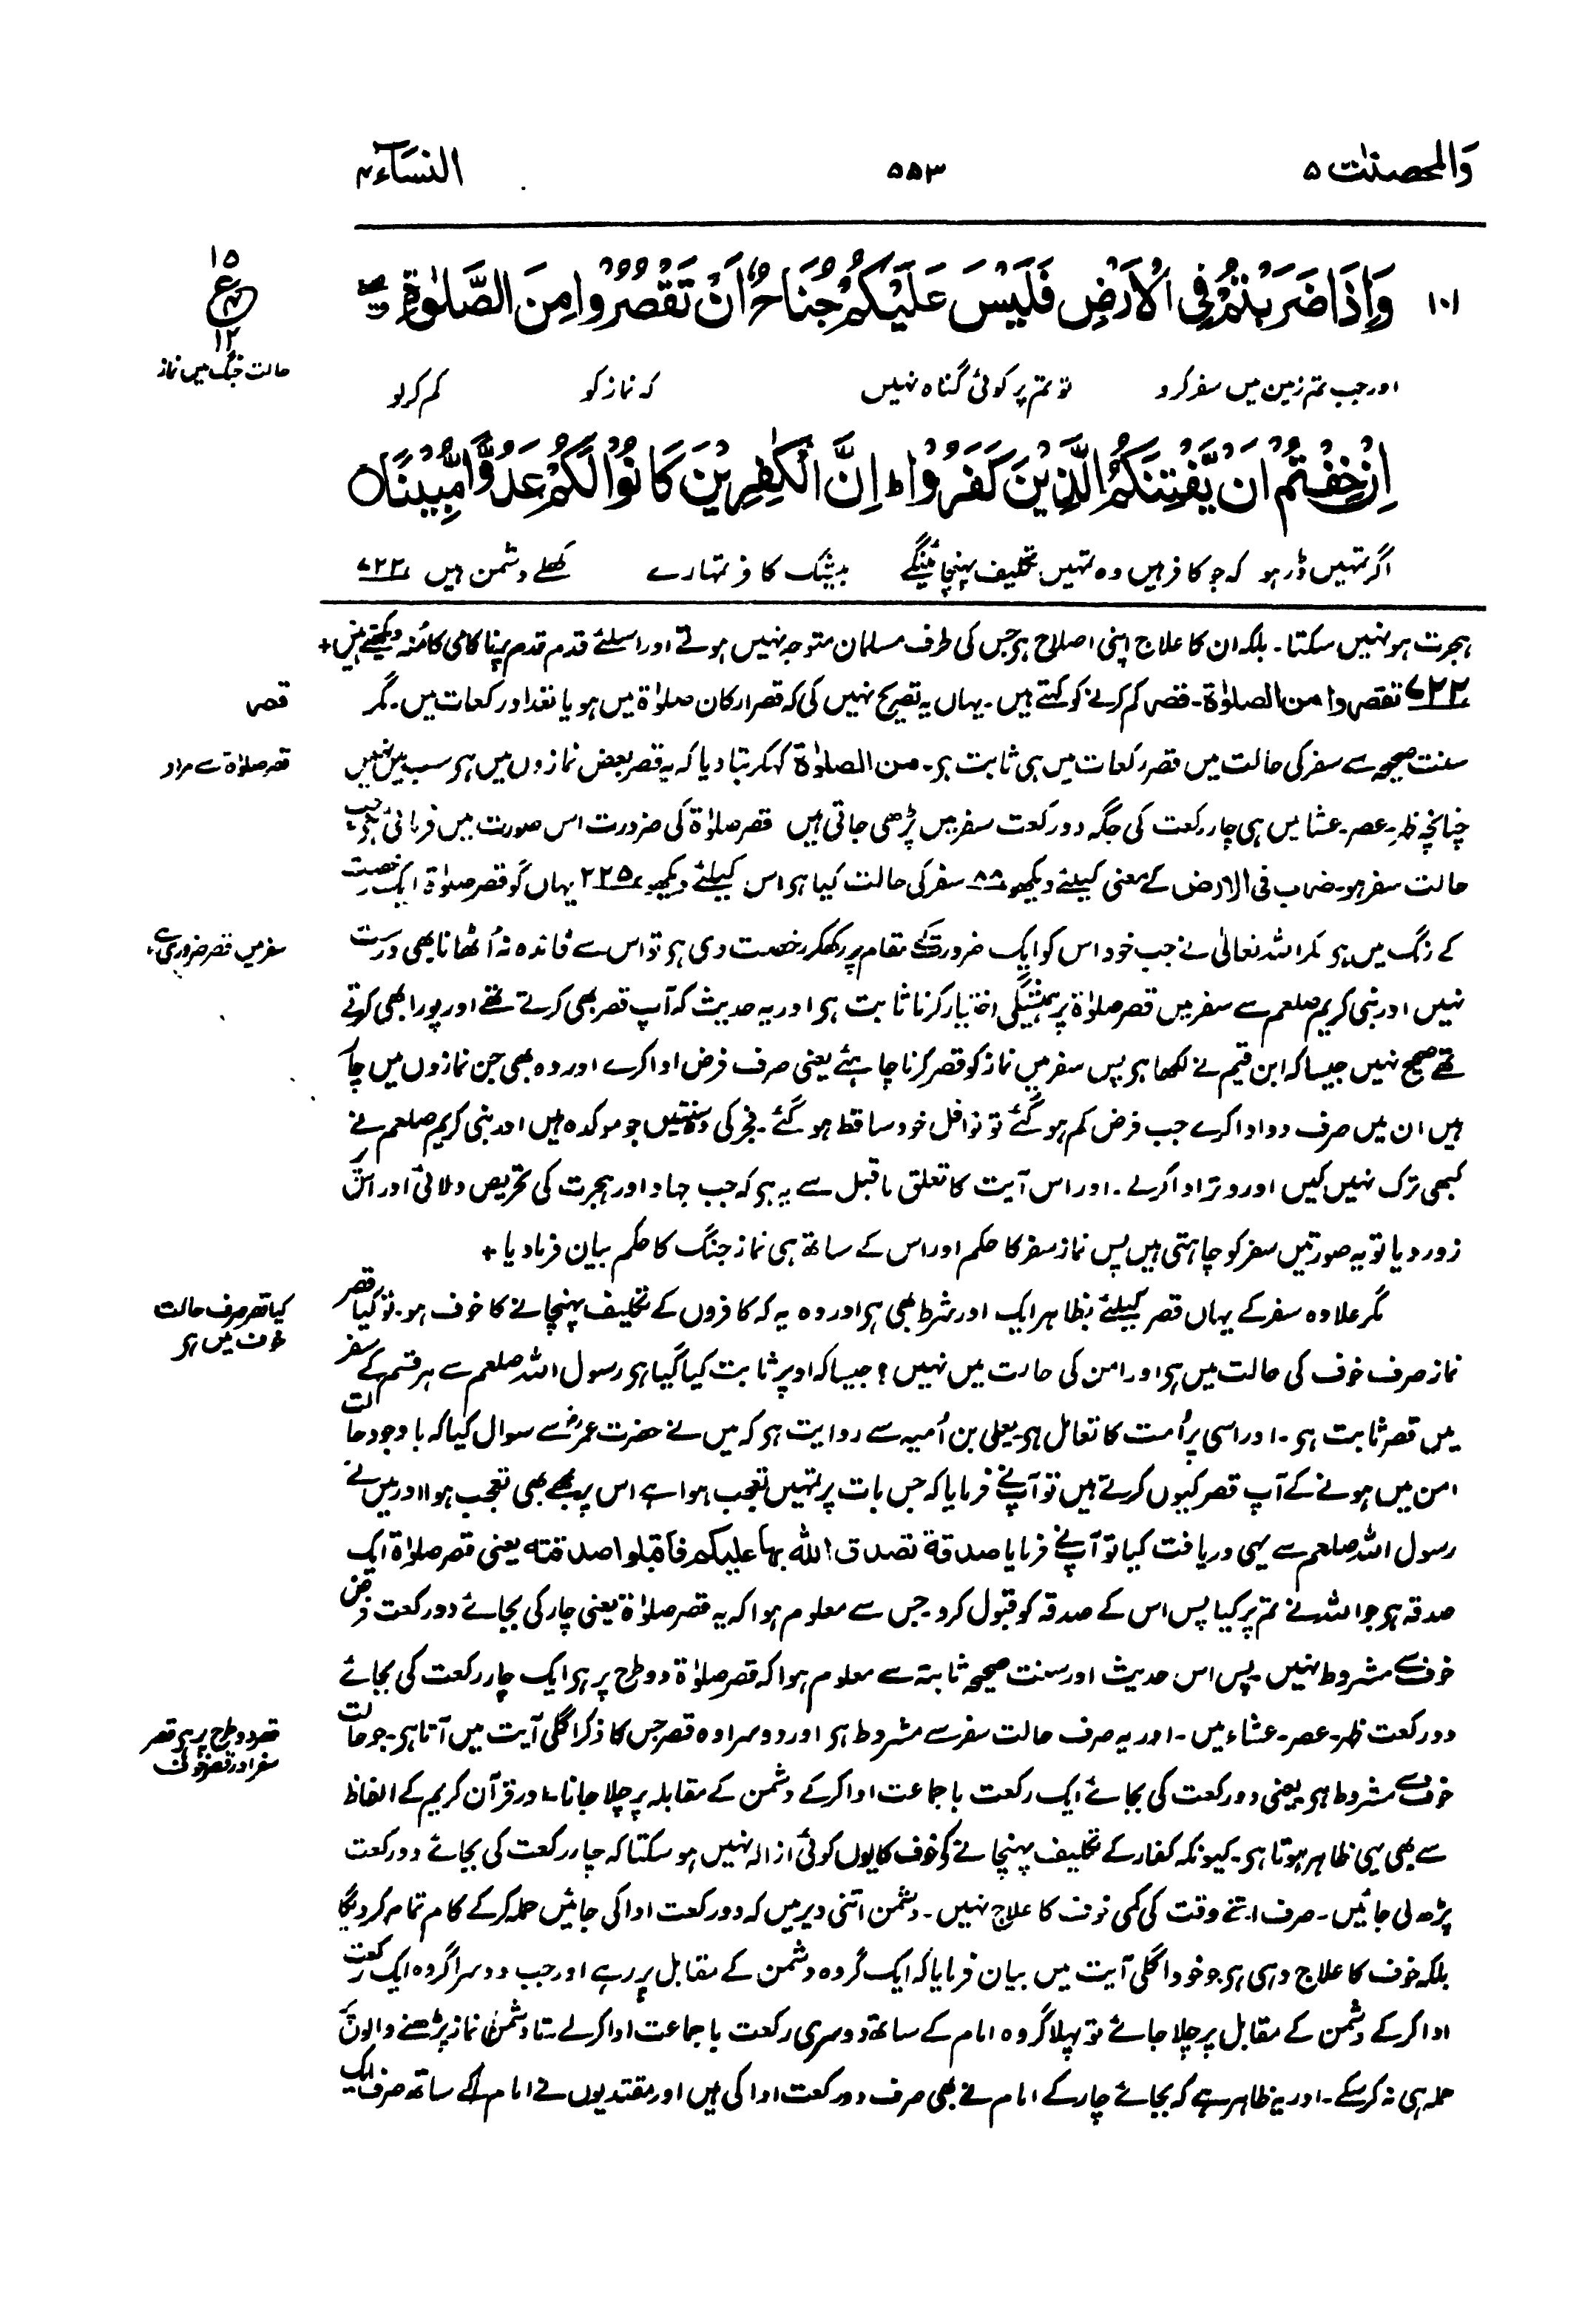 وَالمحصنٰت ۵
۵۵۳
النسَآء ۴
۱۰۱ وَاِذَا ضَرَبْتُمْ فِی الْاَرْضِ فَلَیْسَ عَلَیْکُمْ جُنَاحٌ اَنْ تَقْصُرُوْا مِنَ الصَّلٰوةِ
۱۵
ع
۱۲
حالت جنگ میں نماز
اور جب تم زمین میں سفر کرو تو تم پر کوئی گناہ نہیں کہ نماز کو کم کر لو
اِنْ خِفْتُمْ اَنْ یَّفْتِنَکُمُ الَّذِیْنَ کَفَرُوْا ؕ اِنَّ الْکٰفِرِیْنَ کَانُوْا لَکُمْ عَدُوًّا مُّبِیْنًا ○
اگر تمہیں ڈر ہو کہ جو کافر ہیں وہ تمہیں تکلیف پہنچائینگے بیشک کافر تمہارے کھلے دشمن ہیں ۷۲۲
ہجرت ہو نہیں سکتا۔ بلکہ ان کا علاج اپنی اصلاح ہے جس کی طرف مسلمان متوجہ نہیں ہوتے اور اسلئے قدم قدم پر ناکامی کا مُنہ دیکھتے ہیں +
۷۲۲ تقصروا من الصلوٰة۔ قصر کم کرنے کو کہتے ہیں۔ یہاں یہ تصریح نہیں کی کہ قصر ارکان صلوٰة میں ہو یا تعداد رکعات میں۔ مگر
قصر
سنت صحیحہ سے سفر کی حالت میں قصر رکعات میں ہی ثابت ہے۔ من الصلوٰة کہکر بتا دیا کہ یہ قصر بعض نمازوں میں ہے سب میں نہیں
قصر صلوٰة سے مراد
چنانچہ ظہر۔ عصر۔ عشا میں ہی چار رکعت کی جگہ دو رکعت سفر میں پڑھی جاتی ہیں قصر صلوٰة کی ضرورت اس صورت میں فرمائی ہے جب
حالت سفر ہو۔ ضرب فی الارض کے معنی کیلئے دیکھو ۸۸ سفر کی حالت کیا ہے اس کیلئے دیکھو ۲۲۵ یہاں گو قصر صلوٰة ایک رخصت
کے رنگ میں ہے مگر اللہ تعالیٰ نے جب خود اس کو ایک ضرورت کے مقام پر رکھکر رخصت دی ہے تو اس سے فائدہ نہ اُٹھانا بھی درست
سفر میں قصر ضروری ہے
نہیں اور نبی کریم صلعم سے سفر میں قصر صلوٰة پر ہمیشگی اختیار کرنا ثابت ہے اور یہ حدیث کہ آپ قصر بھی کرتے تھے اور پورا بھی کرتے
تھے صحیح نہیں جیسا کہ ابن قیم نے لکھا ہے پس سفر میں نماز کو قصر کرنا چاہئے یعنی صرف فرض ادا کرے اور وہ بھی جن نمازوں میں چار
ہیں ان میں صرف دو ادا کرے جب فرض کم ہو گئے تو نوافل خود ساقط ہو گئے۔ فجر کی دو سنتیں جو موکدہ ہیں اور نبی کریم صلعم نے
کبھی ترک نہیں کیں اور وتر ادا کرلے۔ اور اس آیت کا تعلق ماقبل سے یہ ہے کہ جب جہاد اور ہجرت کی تحریص دلائی اور اس پر
زور دیا تو یہ صورتیں سفر کو چاہتی ہیں پس نماز سفر کا حکم اور اس کے ساتھ ہی نماز جنگ کا حکم بیان فرما دیا +
مگر علاوہ سفر کے یہاں قصر کیلئے بظاہر ایک اور شرط بھی ہے اور وہ یہ کہ کافروں کے تکلیف پہنچانے کا خوف ہو۔ تو کیا قصر
کیا قصر صرف حالت
خوف میں ہے
نماز صرف خوف کی حالت میں ہے اور امن کی حالت میں نہیں؟ جیسا کہ اوپر ثابت کیا گیا ہے رسول اللہ صلعم سے ہر قسم کے سفر
میں قصر ثابت ہے۔ اور اسی پر اُمت کا تعامل ہے۔ یعلی بن اُمیہ سے روایت ہے کہ میں نے حضرت عمرؓ سے سوال کیا کہ باوجود حالت
امن میں ہونے کے آپ قصر کیوں کرتے ہیں تو آپ نے فرمایا کہ جس بات پر تمہیں تعجب ہوا ہے اس پر مجھے بھی تعجب ہوا اور میں نے
رسول اللہ صلعم سے یہی دریافت کیا تو آپ نے فرمایا صدقة تصدق اللہ بہا علیکم فاقبلوا صدقته یعنی قصر صلوٰة ایک
صدقہ ہے جو اللہ نے تم پر کیا پس اس کے صدقہ کو قبول کرو۔ جس سے معلوم ہوا کہ یہ قصر صلوٰة یعنی چار کی بجائے دو رکعت فرض
خوف سے مشروط نہیں۔ پس اس حدیث اور سنت صحیحہ ثابتہ سے معلوم ہوا کہ قصر صلوٰة دو طرح پر ہے ایک چار رکعت کی بجائے
دو رکعت ظہر۔ عصر۔ عشاء میں۔ اور یہ صرف حالت سفر سے مشروط ہے اور دوسرا وہ قصر جس کا ذکر اگلی آیت میں آتا ہے۔ جو حالت
قصر دو طرح پر ہے قصر
سفر اور قصر خوف
خوف سے مشروط ہے یعنی دو رکعت کی بجائے ایک رکعت با جماعت ادا کرکے دشمن کے مقابلہ پر چلا جانا۔ اور قرآن کریم کے الفاظ
سے بھی یہی ظاہر ہوتا ہے۔ کیونکہ کفار کے تکلیف پہنچانے کے خوف کا یوں کوئی ازالہ نہیں ہو سکتا کہ چار رکعت کی بجائے دو رکعت
پڑھ لی جائیں۔ صرف اتنے وقت کی کمی خوف کا علاج نہیں۔ دشمن اتنی دیر میں کہ دو رکعت ادا کی جائیں حملہ کرکے کام تمام کر دیگا
بلکہ خوف کا علاج وہی ہے جو خود اگلی آیت میں بیان فرمایا کہ ایک گروہ دشمن کے مقابل پر رہے اور جب دوسرا گروہ ایک رکعت
ادا کرکے دشمن کے مقابل پر چلا جائے تو پہلا گروہ امام کے ساتھ دوسری رکعت با جماعت ادا کرلے۔ تا دشمن نماز پڑھنے والوں پر
حملہ ہی نہ کر سکے۔ اور یہ ظاہر ہے کہ بجائے چار کے امام نے بھی صرف دو رکعت ادا کی ہیں اور مقتدیوں نے امام کے ساتھ صرف ایک